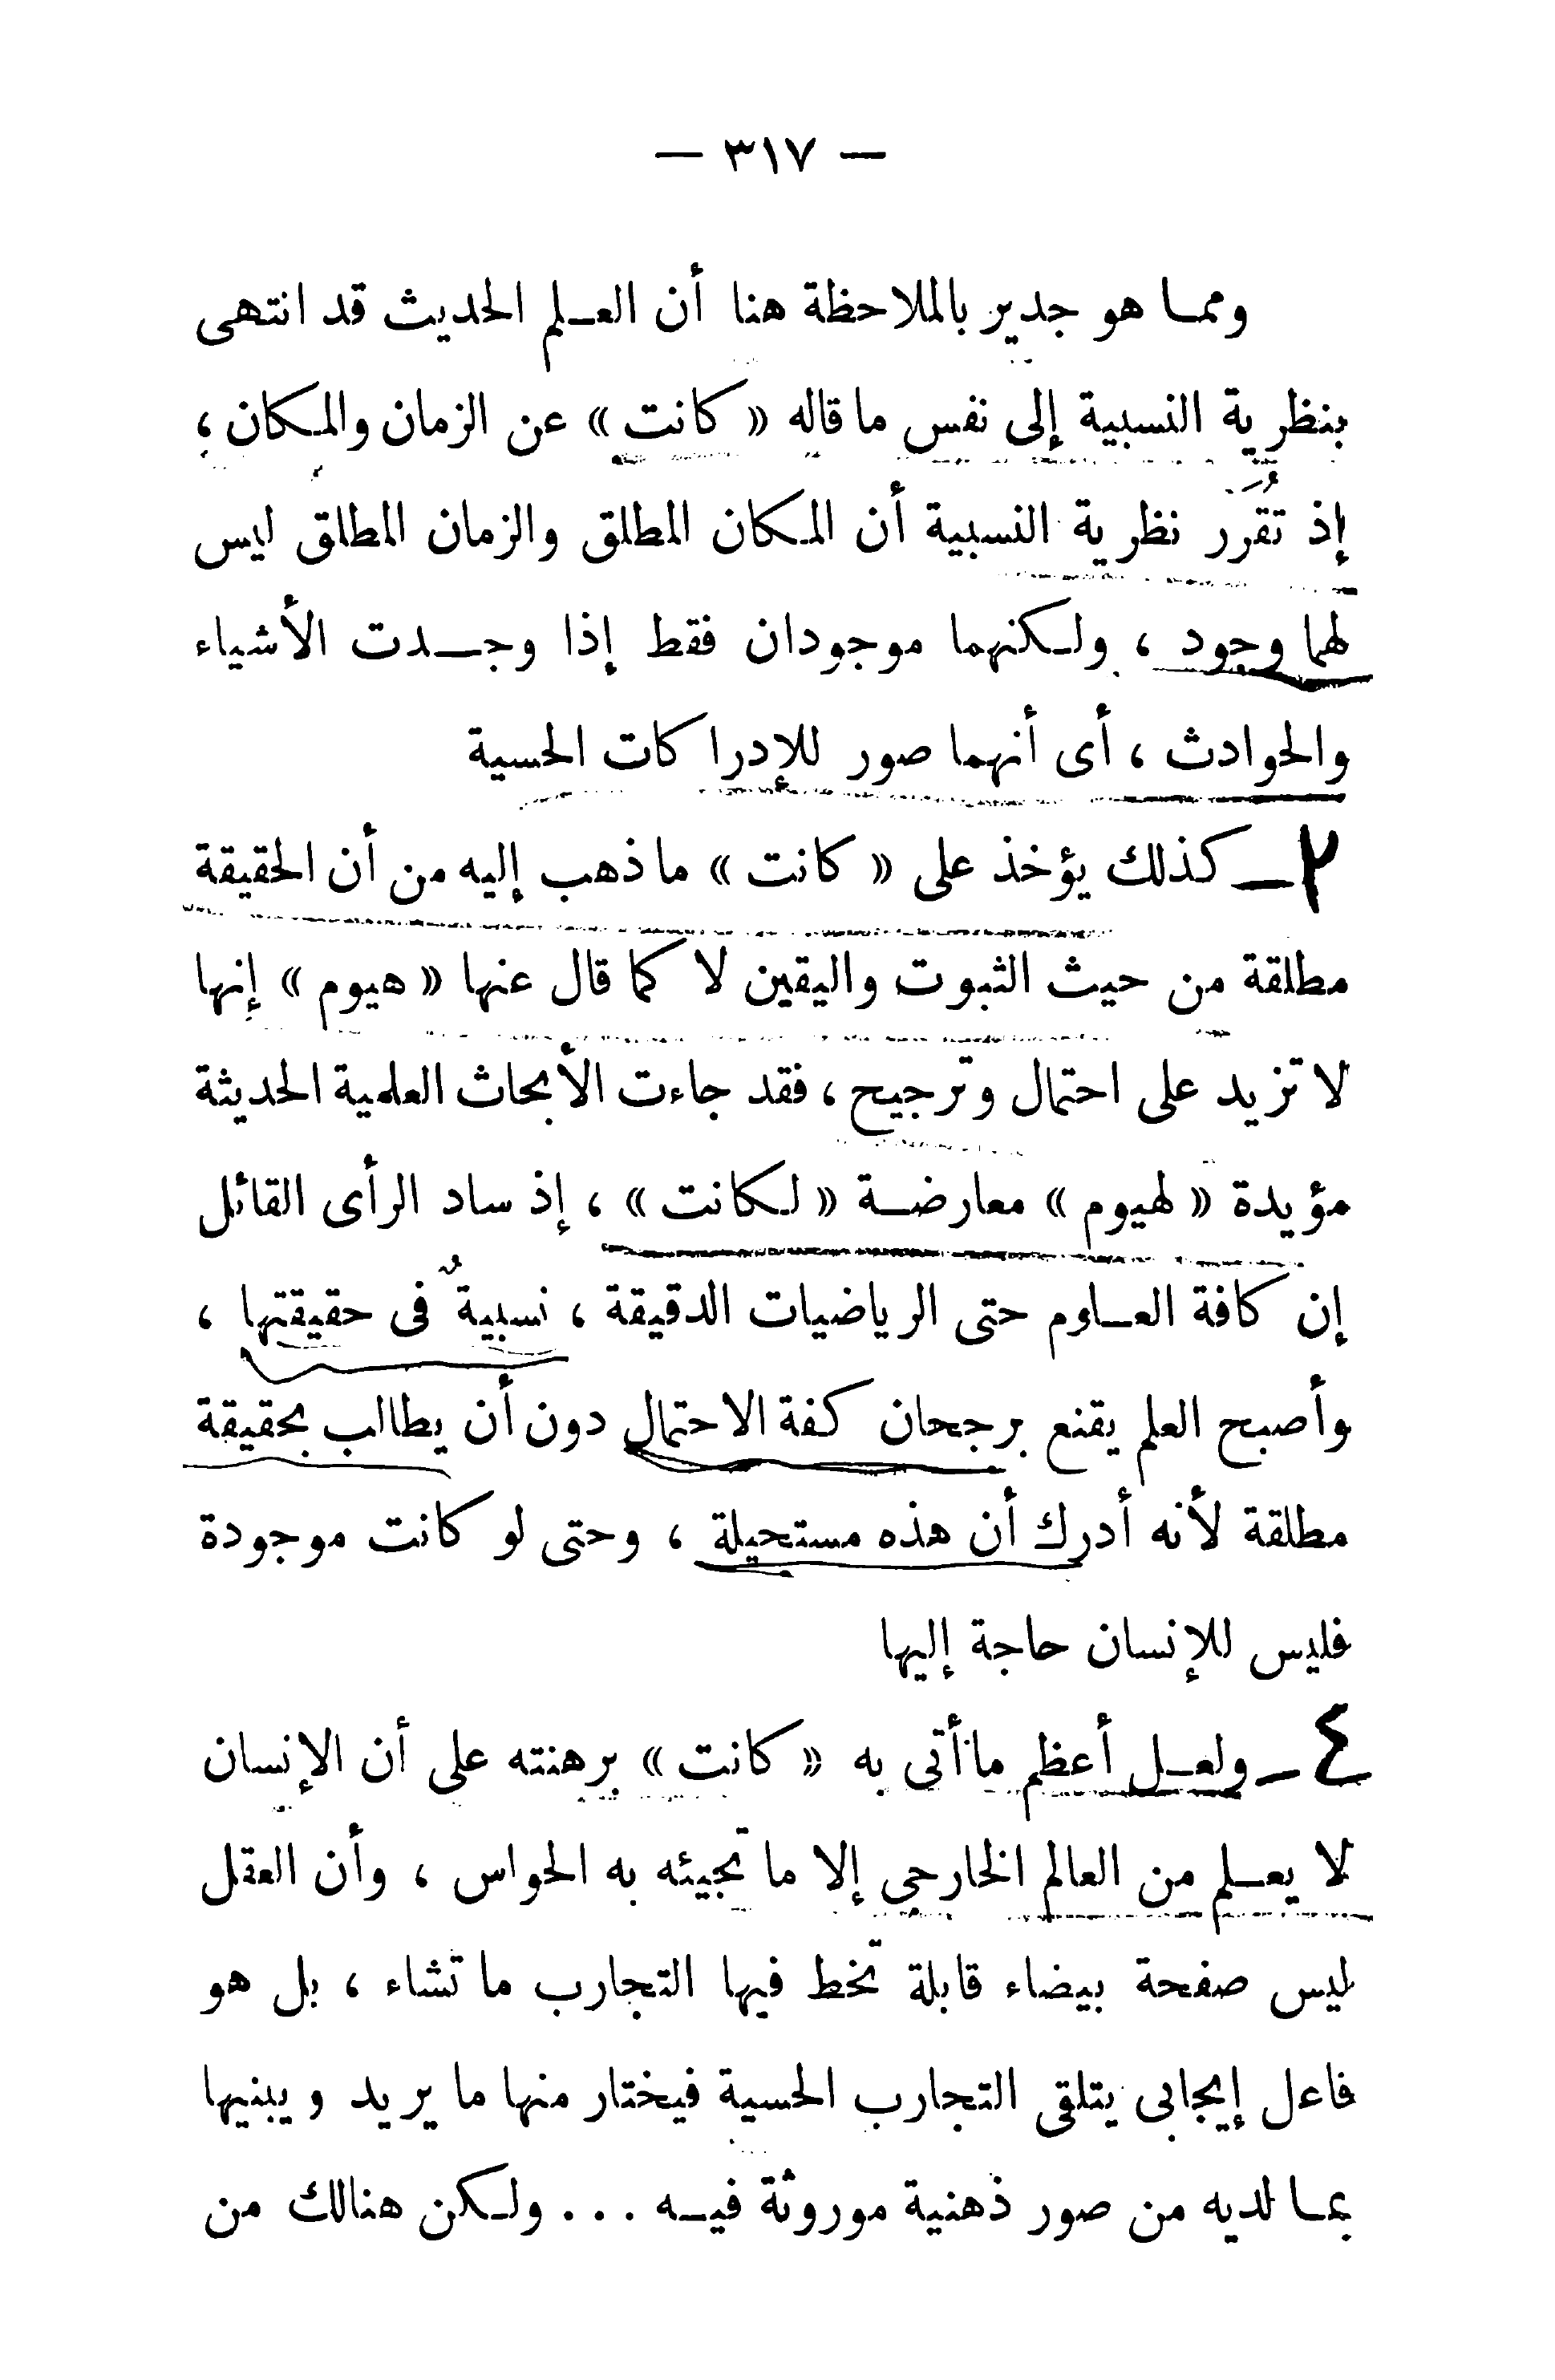 — ٣١٧ —
ومما هو جدير بالملاحظة هنا أن العلم الحديث قد انتهى
بنظرية النسبية إلى نفس ما قاله « كانت » عن الزمان والمكان ؛
إذ تُقرَر نظرية النسبية أن المكان المطلق والزمان المطلق ليس
لهما وجود ، ولكنهما موجودان فقط إذا وجدت الأشياء
والحوادث ، أى أنهما صور للإدراكات الحسية
٢ – كذلك يؤخذ على « كانت » ما ذهب إليه من أن الحقيقة
مطلقة من حيث الثبوت واليقين لا كما قال عنها « هيوم » إنها
لا تزيد على احتمال وترجيح ، فقد جاءت الأبحاث العلمية الحديثة
مؤيدة « لهيوم » معارضة « لكانت » ، إذ ساد الرأى القائل
إن كافة العلوم حتى الرياضيات الدقيقة ، نسبيةٌ فى حقيقتها ،
وأصبح العلم يقنع برجحان كفة الاحتمال دون أن يطالب بحقيقة
مطلقة لأنه أدرك أن هذه مستحيلة ، وحتى لو كانت موجودة
فليس للإنسان حاجة إليها
٤ – ولعل أعظم ما أتى به « كانت » برهنته على أن الإنسان
لا يعلم من العالم الخارجى إلا ما تجيئه به الحواس ، وأن العقل
ليس صفحة بيضاء قابلة تخط فيها التجارب ما تشاء ، بل هو
فاعل إيجابى يتلقى التجارب الحسية فيختار منها ما يريد ويبنيها
بما لديه من صور ذهنية موروثة فيه ... ولكن هنالك من